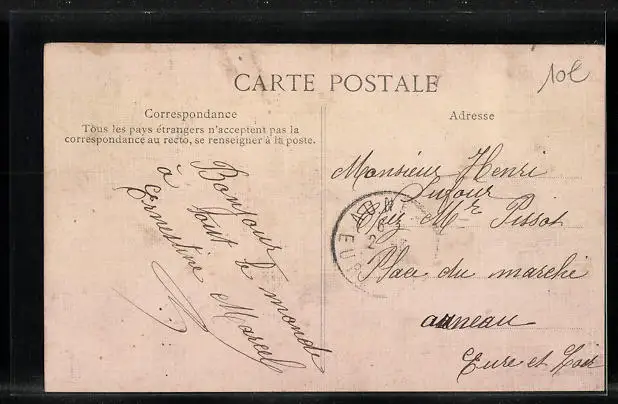 10€
CARTE POSTALE
Correspondance
Tous les pays étrangers n'acceptent pas la
correspondance au recto, se renseigner à la poste.
Bonjour
à tout le monde
Ernestine Marcel
Adresse
Monsieur Henri
Dufour
Chez Mr Pissot
Place du marché
auneau
Eure et Loir
AUN
6-3
2
EUR